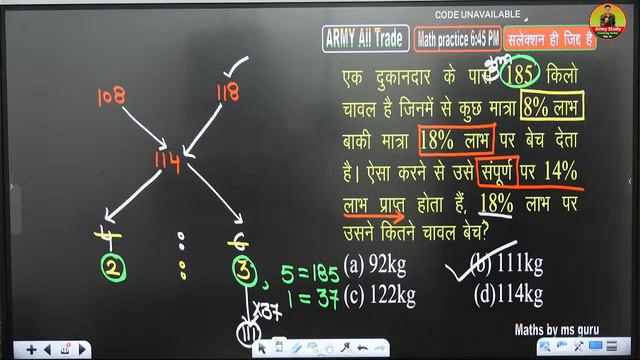 CODE UNAVAILABLE
Army Study
ARMY All Trade
Math practice 6:45 PM
सलेक्शन ही जिद्द है
एक दुकानदार के पास 185 किलो
चावल है जिनमें से कुछ मात्रा 8% लाभ
बाकी मात्रा 18% लाभ पर बेच देता
है। ऐसा करने से उसे संपूर्ण पर 14%
लाभ प्राप्त होता हैं, 18% लाभ पर
उसने कितने चावल बेच?
(a) 92kg
(b) 111kg
(c) 122kg
(d)114kg
108 118
114
4 : 6
2 : 3, 5=185
1=37
×37
111
Maths by ms guru